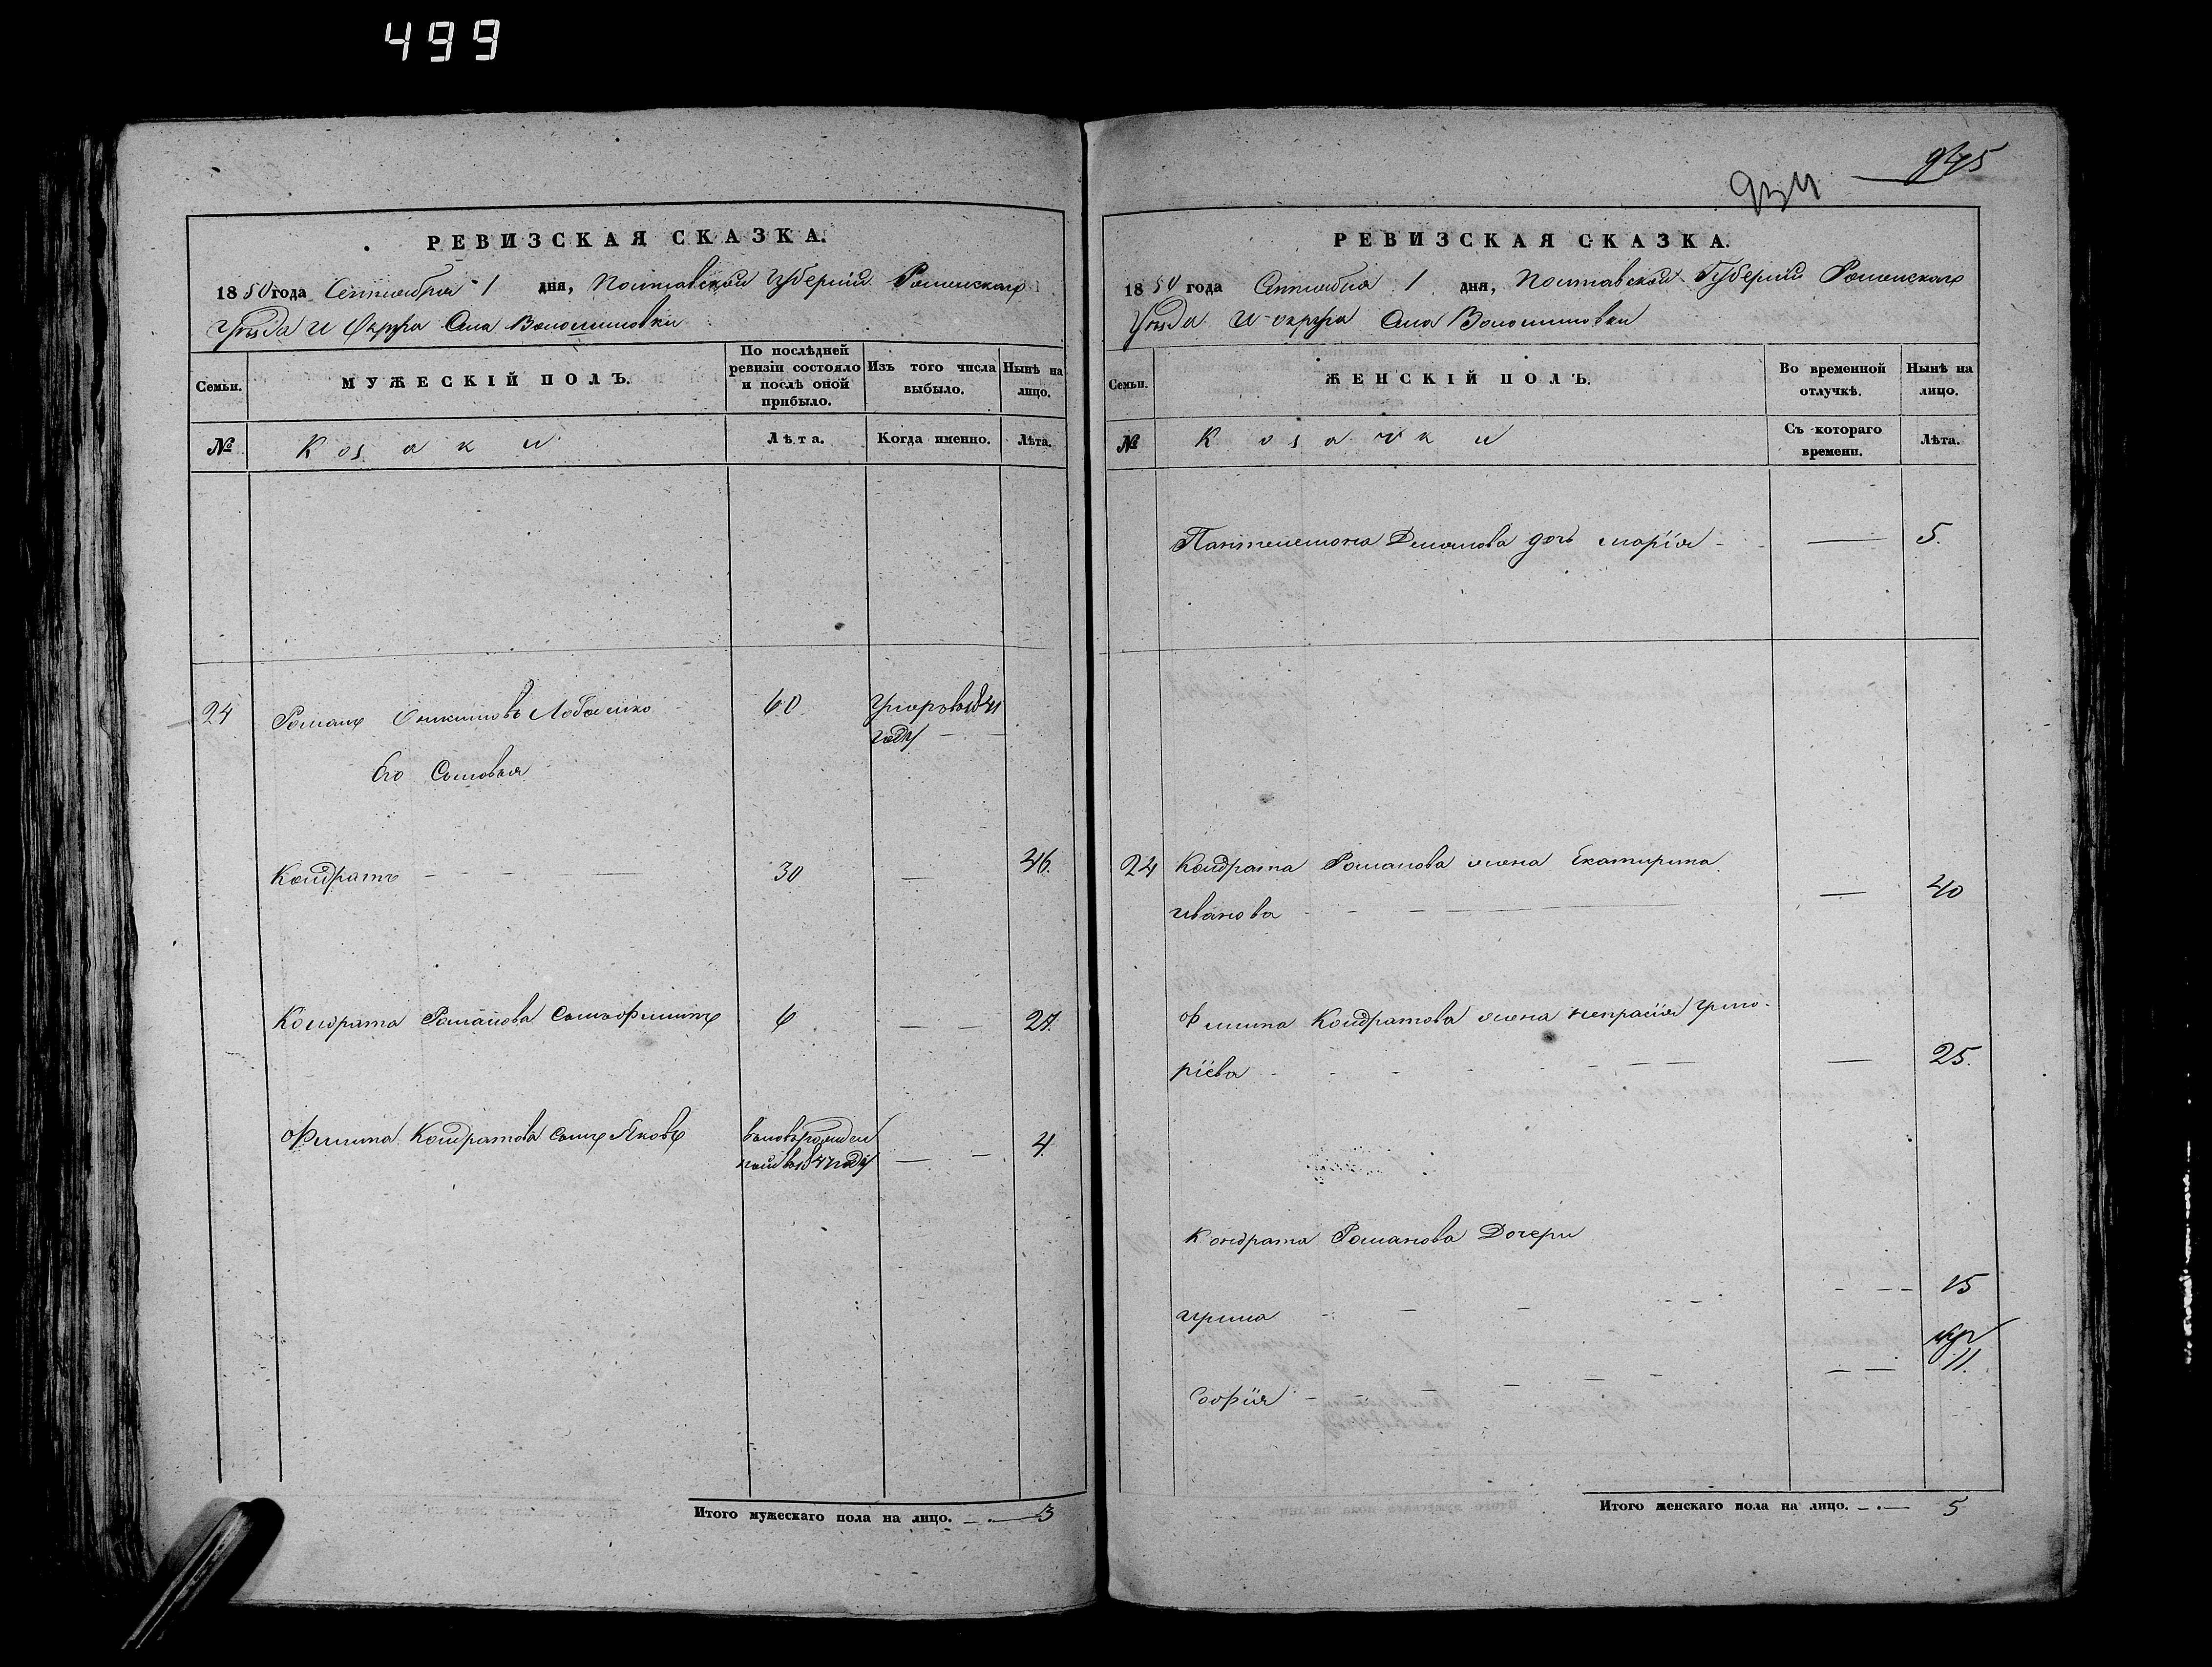 499
РЕВИЗСКАЯ СКАЗКА.
1850 года Сентября 1 дня, Полтавской Губерніи Роменского
Уѣзда и Округа Села Волошиновки
Семьи. МУЖЕСКІЙ ПОЛЪ. По послѣдней ревизіи состояло и послѣ оной прибыло. Изъ того числа выбыло. Нынѣ на лицо.
№ Козаки Лѣта. Когда именно. Лѣта.
24 Романъ Лобаенко 60 Умеръ в 1841
году
Его Сыновья
Кондратъ 30 — 46.
Кондрата Романова Сынъ Филипъ 6 — —
Филипа Кондратова Сынъ Яковъ 4.
Итого мужескаго пола на лицо. 3
945
РЕВИЗСКАЯ СКАЗКА.
1850 года Сентября 1 дня, Полтавской Губерніи Роменского
Уѣзда и округа Села Волошиновки
Семьи. ЖЕНСКІЙ ПОЛЪ. Во временной отлучкѣ. Нынѣ на лицо.
№ Козачки Съ котораго времени. Лѣта.
Пантелемона Демянова дочь марія — 5.
24 Кондрата Романова жена Екатирина
иванова — 40
Филипа Кондратова жена Григо-
ріева — 25.
Кондрата Романова Дочери
ирина 15
Софія 11.
Итого женскаго пола на лицо. 5